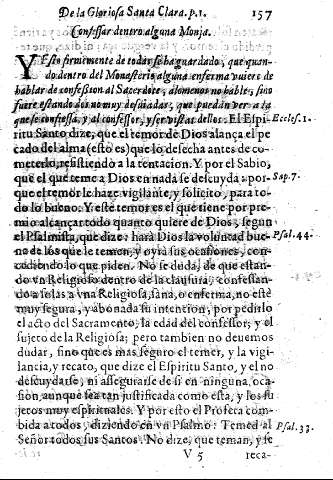 De la Gloriosa Santa Clara. p. 1. 157
Confessar dentro alguna Monja.
Y Esto firmemente de todas sea guardado, que quan-
do dentro del Monasterio alguna enferma vuiere de
hablar de confession al Sacerdote, alomenos no hable, sino
fuere estando dos no muy desuiadas, que puedan ver a la
que se confiessa, y al confessor, y ser vistas dellos. El Espi- Eccles. 1.
ritu Santo dize, que el temor de Dios alança el pe
cado del alma (esto es) que lo desecha antes de co-
meterlo, resistiendo a la tentacion. Y por el Sabio,
que el que teme a Dios en nada se descuyda: por- Sap. 7.
que el temor le haze vigilante, y solicito, para to-
do lo bueno. Y este temor es el que tiene por pre-
mio alcançar todo quanto quiere de Dios, segun
el Psalmista, que dize: harà Dios la voluntad bue- Psal. 44.
no de los que le temen, y oyrà sus ocasiones, con-
cediendo lo que piden. No se duda, de que estan-
do vn Religioso dentro de la clausura, confessan-
do a solas a vna Religiosa, sana, o enferma, no estè
muy segura, y abonada su intencion; por pedirlo
el acto del Sacramento, la edad del confessor; y el
sujeto de la Religiosa; pero tambien no deuemos
dudar, sino que es mas seguro el temer, y la vigi-
lancia, y recato, que dize el Espiritu Santo, y el no
descuydarse, ni assegurarse de si en ninguna, oca-
sion, aunque sea tan justificada como esta, y los su-
jetos muy espirituales. Y por esto el Profeta com-
bida a todos, diziendo en vn Psalmo: Temed al Psal. 33.
Señor todos sus Santos. No dize, que teman, y se
V 5 reca-